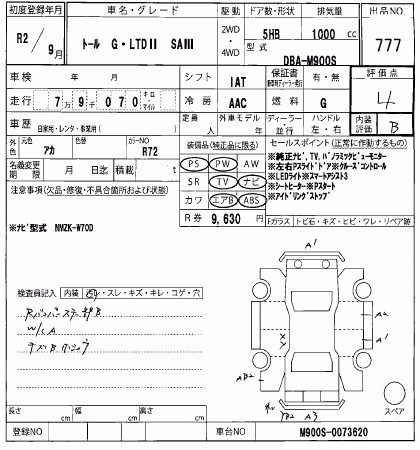 初度登録年月 車名・グレード 駆動 ドア数・形状 排気量 出品NO.
R2/9月 ﾄｰﾙ G・LTDⅡ SAⅢ 2WD・4WD 5HB 1000 cc 777
型式 DBA-M900S
車検 年 月 シフト IAT 保証書 有・無 評価点 4
走行 7万9千070 キロ マイル 冷房 AAC 燃料 G
車歴 自家用・レンタ・事業用( ) 定員 人 外車モデル 年 ディーラー・並行 ハンドル 左・右 内装評価 B
外色 元色 アカ 色替 カラーNO R72
装備品(純正品に限る) セールスポイント(正常に作動するもの)
名義変更期限 月 日 積載 t
PS PW AW
SR TV ナビ
カワ エアB ABS
※純正ﾅﾋﾞ,TV,ﾊﾟﾉﾗﾐｯｸﾋﾞｭｰﾓﾆﾀｰ
※左右Pｽﾗｲﾄﾞﾄﾞｱ※ｸﾙｰｽﾞｺﾝﾄﾛｰﾙ
※LEDﾗｲﾄ※ｽﾏｰﾄｱｼｽﾄ3
※ｼｰﾄﾋｰﾀｰ※Pｽﾀｰﾄ
※ｱｲﾄﾞﾘﾝｸﾞｽﾄｯﾌﾟ
注意事項(欠品・修復・不具合箇所および状態)
※ﾅﾋﾞ型式 NMZK-W70D
R券 9,630 円
Fガラス トビ石・キズ・ヒビ・ワレ・リペア跡
検査員記入 内装 ・スレ・キズ・キレ・コゲ・穴
W/S A
A1
A2
A1
AD2
A3
スペア
長さ cm 幅 cm 高さ cm
登録NO 車台NO M900S-0073620